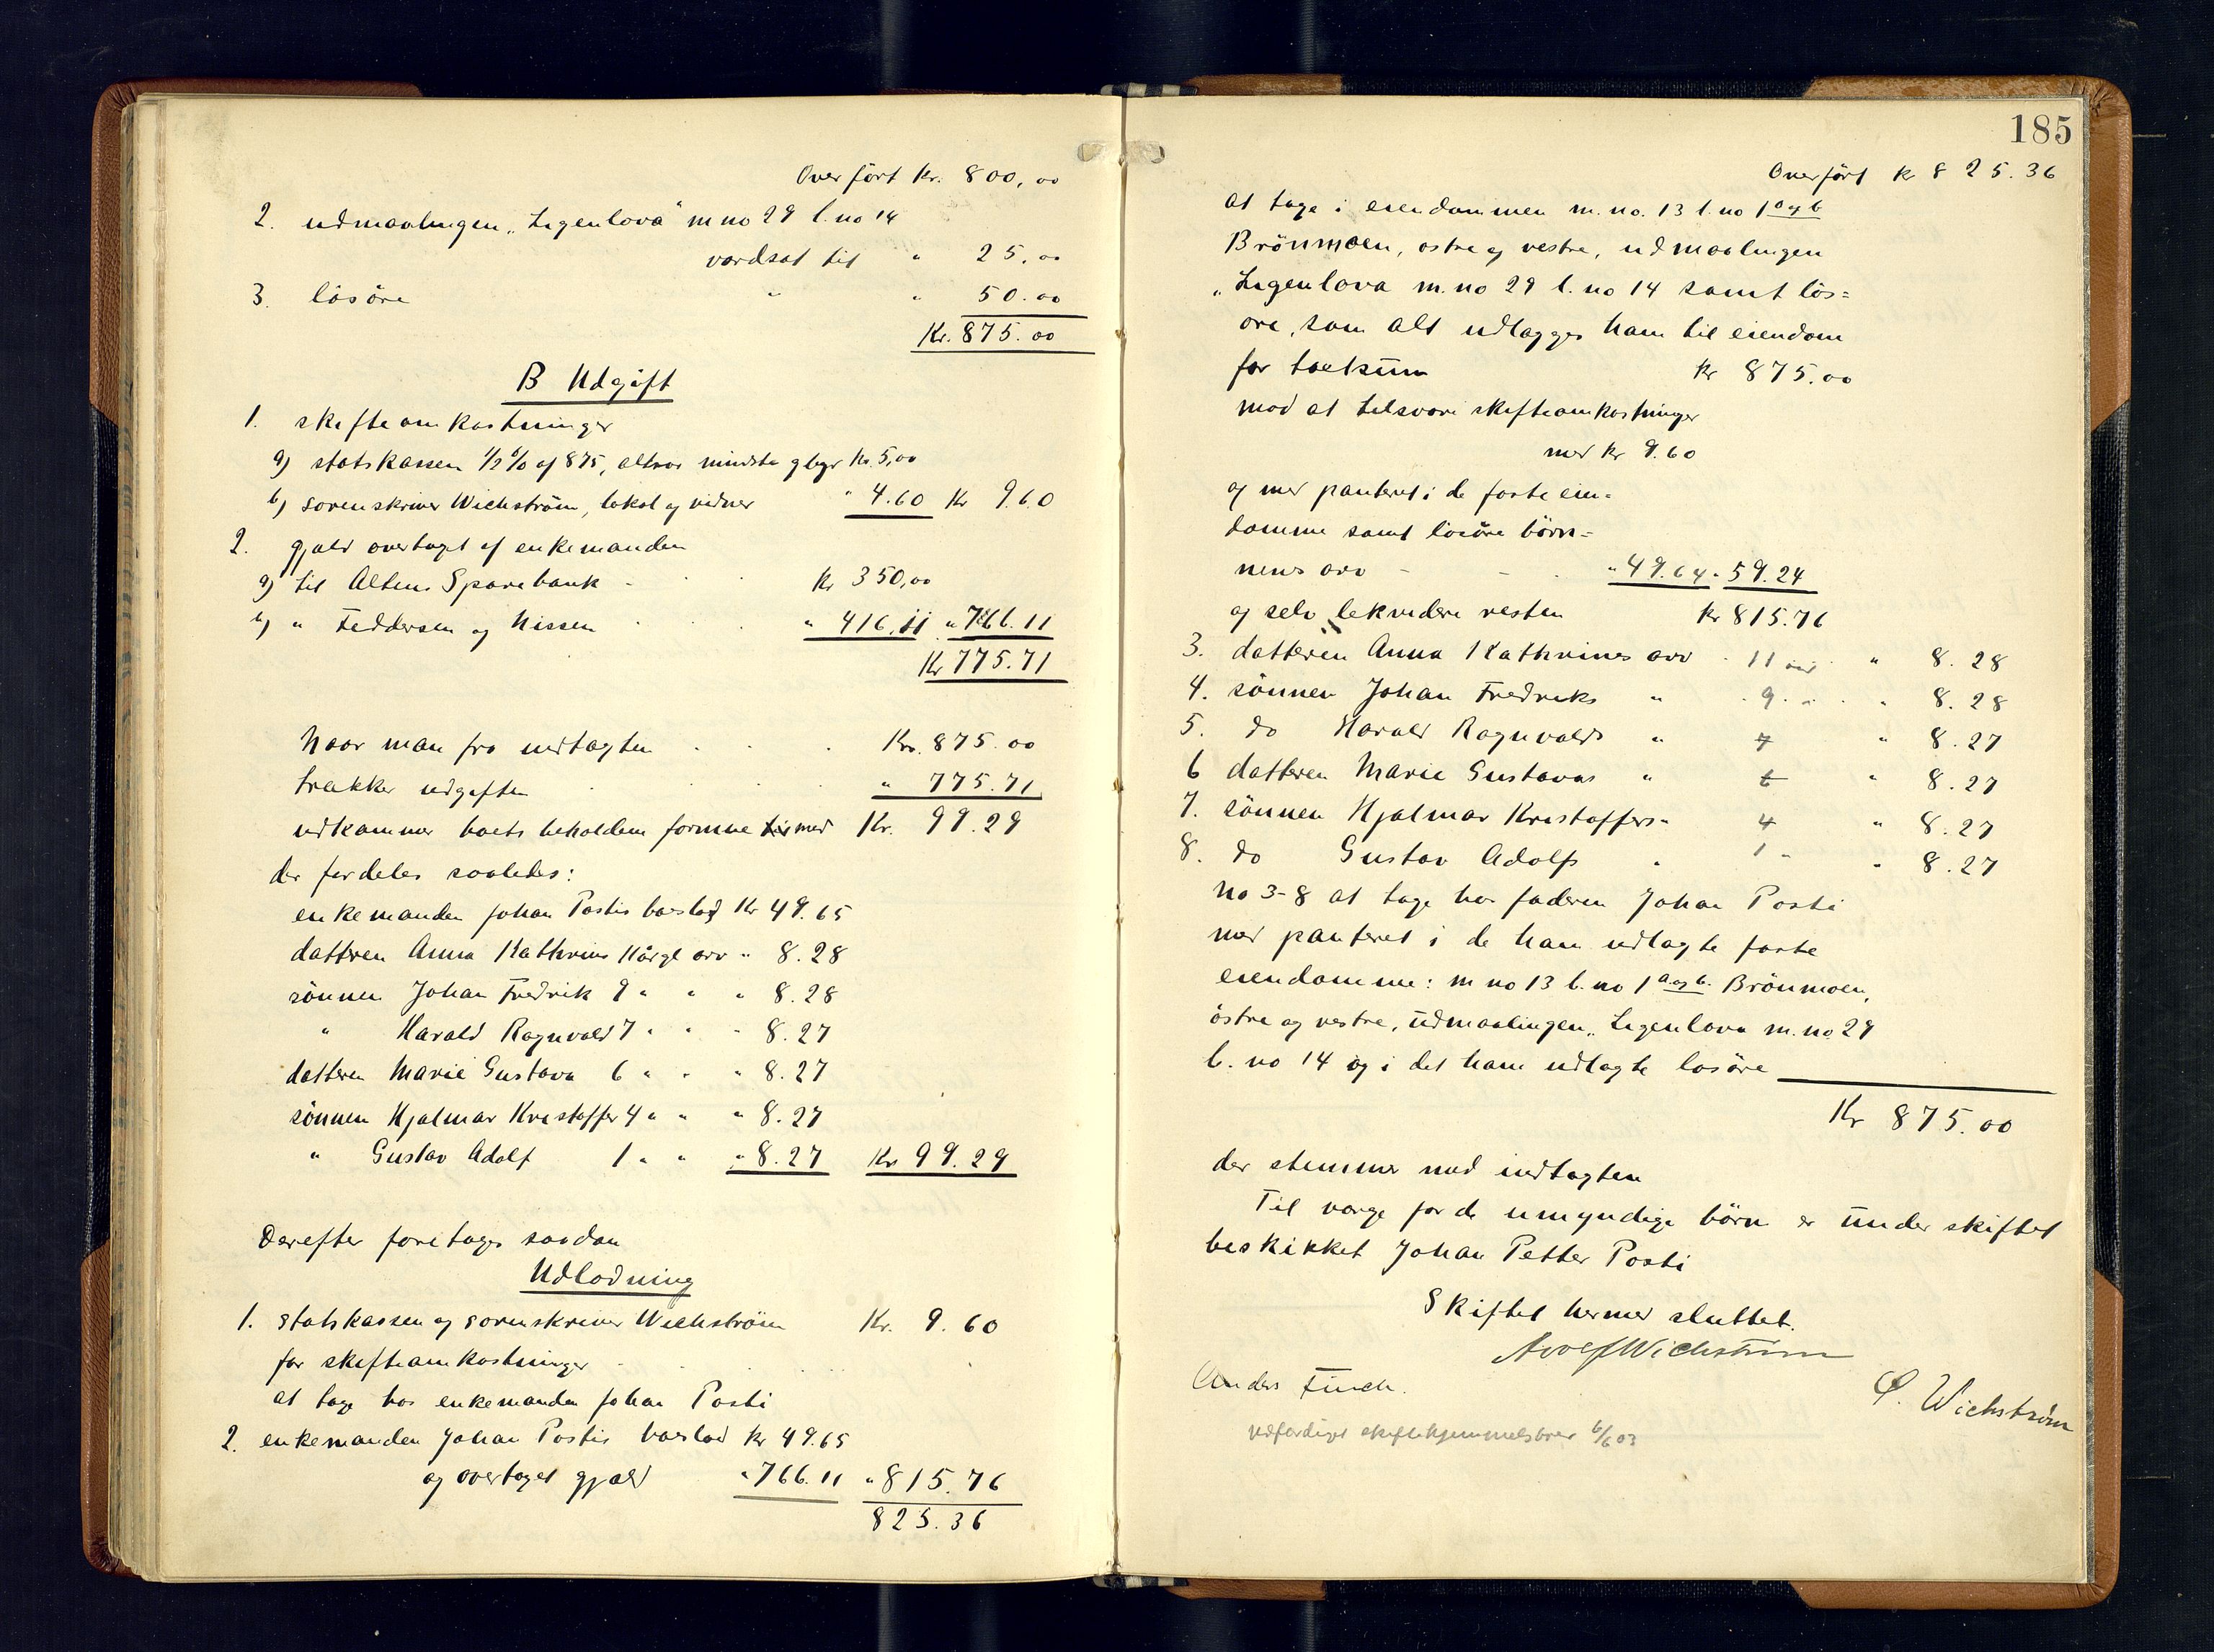 Overført Kr. 800,00
2. udmaalingen „Ligenlova" m no 29 l. no 14
værdsat til " 25.00
3. løsøre " " 50.00
Kr. 875.00
B Udgift
1. skifteomkostninger
a) statskassen 1/2 % af 875, altsaa mindste gbyr Kr. 5,00
b) sorenskriver Wichström, lokal og vidner " 4.60 Kr 9.60
2. gjæld overtaget af enkemanden
a) til Altens Sparebank - Kr 350,00
b) " Feddersen og Nissen " 416,11 " 766.11
Kr 775.71
Naar man fra indtægten Kr. 875.00
trækker udgiften " 775.71
udkommer boets beholdne formue med Kr. 99.29
der fordeles saaledes:
enkemanden Johan Postis boslod Kr 49.65
dattren Anna Kathrine 11årgl arv " 8.28
sønnen Johan Fredrik 9 " " " 8.28
" Harald Ragnvald 7 " " " 8.27
datteren Marie Gustava 6 " " " 8.27
sønnen Hjalmar Kristoffer 4 " " " 8.27
" Gustav Adolf 1 " " " 8.27 Kr 99.29
Derefter foretages saadan
Udlodning
1. statskassen og sorenskriver Wichström Kr. 9.60
for skifteomkostninger
at tage hos enkemanden Johan Posti
2. enkemanden Johan Postis boslod Kr 49.65
og overtaget gjæld " 766.11 " 815.76
825.36
185
Overført kr 825.36
at tage i eiendommen m. no. 13 l. no 1 a og b
Brönmoen, østre og vestre, udmaalingen
„Ligenlova m. no 29 l. no 14 samt løs=
øre, som alt udlægges ham til eiendom
for taxtsum kr 875.00
mod at tilsvare skifteomkostninger
med kr 9.60
og med panteret i de faste eien=
domme samt løsøre börn=
nens arv - " 49.64 " 59.24
og selv likvidere resten kr 815.76
3. datteren Anna Kathrines arv 11 aar " 8.28
4. sönnen Johan Fredriks " 9 " " 8.28
5. do Harald Ragnvalds " 7 " 8.27
6 datteren Marie Gustavas " 6 " 8.27
7. sönnen Hjalmar Kristoffers " 4 " 8.27
8. do Gustav Adolfs " 1 " " 8.27
No 3-8 at tage hos faderen Johan Posti
med panteret i de ham udlagte faste
eiendomme: m no 13 l. no 1 a og b. Brönmoen,
östre og vestre, udmaalingen „Ligenlova m. no 29
l. no 14 og i det ham udlagte løsöre
Kr 875.00
der stemmer med indtægten
Til værge for de umyndige börn er under skiftet
beskikket Johan Petter Posti
Skiftet hermed sluttet.
Adolf Wichström
Anders Finch.
Wichström
udfærdiget skiftehjemmelsbrev 6/6 03